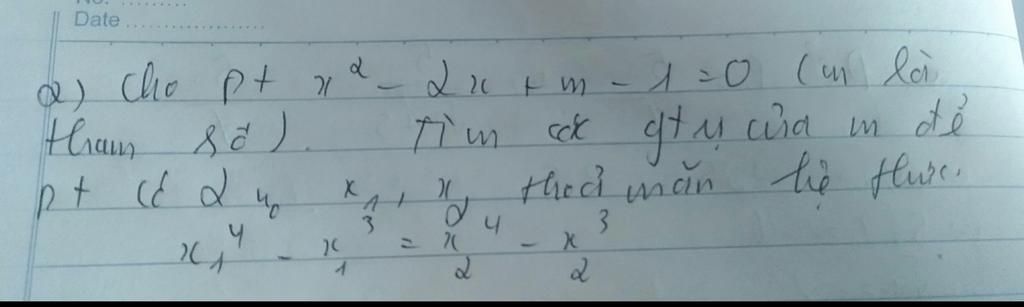 No. .........
Date ....................
2) Cho pt x² - 2x + m - 1 = 0 (m là
tham số). Tìm các gtrị của m để
pt có 2 no x₁, x₂ thoả mãn hệ thức.
x₁⁴ - x₁³ = x₂⁴ - x₂³